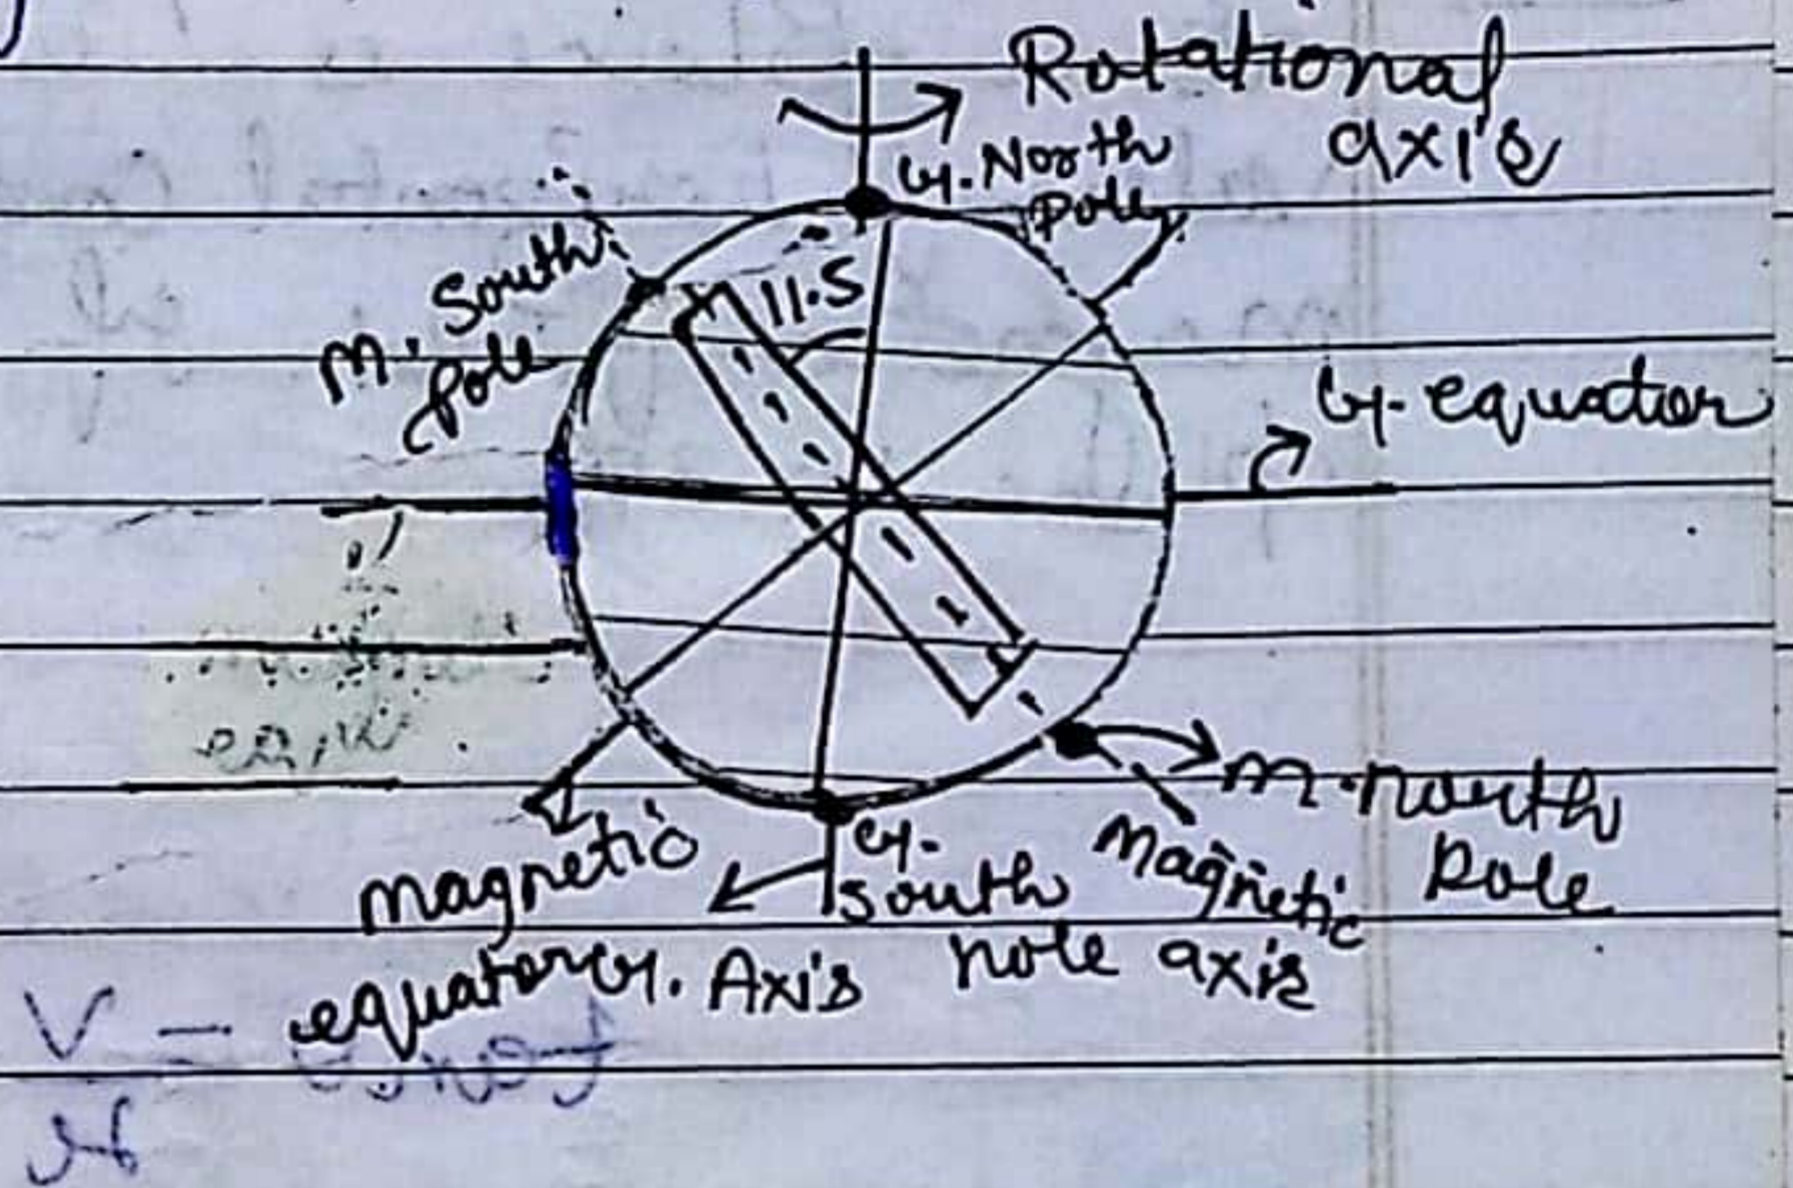 Rotational
axis
G. North
pole
M. South
pole
11.5
G. equator
M. North
pole
Magnetic
axis
G.
South
pole
G. Axis
Magnetic
equator
V =